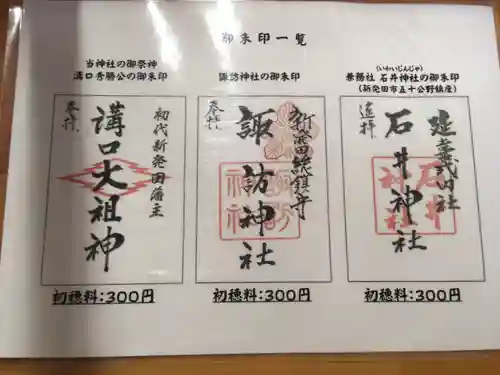 御朱印一覧
当神社の御祭神
溝口秀勝公の御朱印
奉拝
初代新発田藩主
溝口大祖神
初穂料:300円
諏訪神社の御朱印
奉拝
新発田総鎮守
諏訪神社
初穂料:300円
(いわいじんじゃ)
兼務社 石井神社の御朱印
(新発田市五十公野鎮座)
遥拝
延喜式内社
石井神社
石井
神社
初穂料:300円